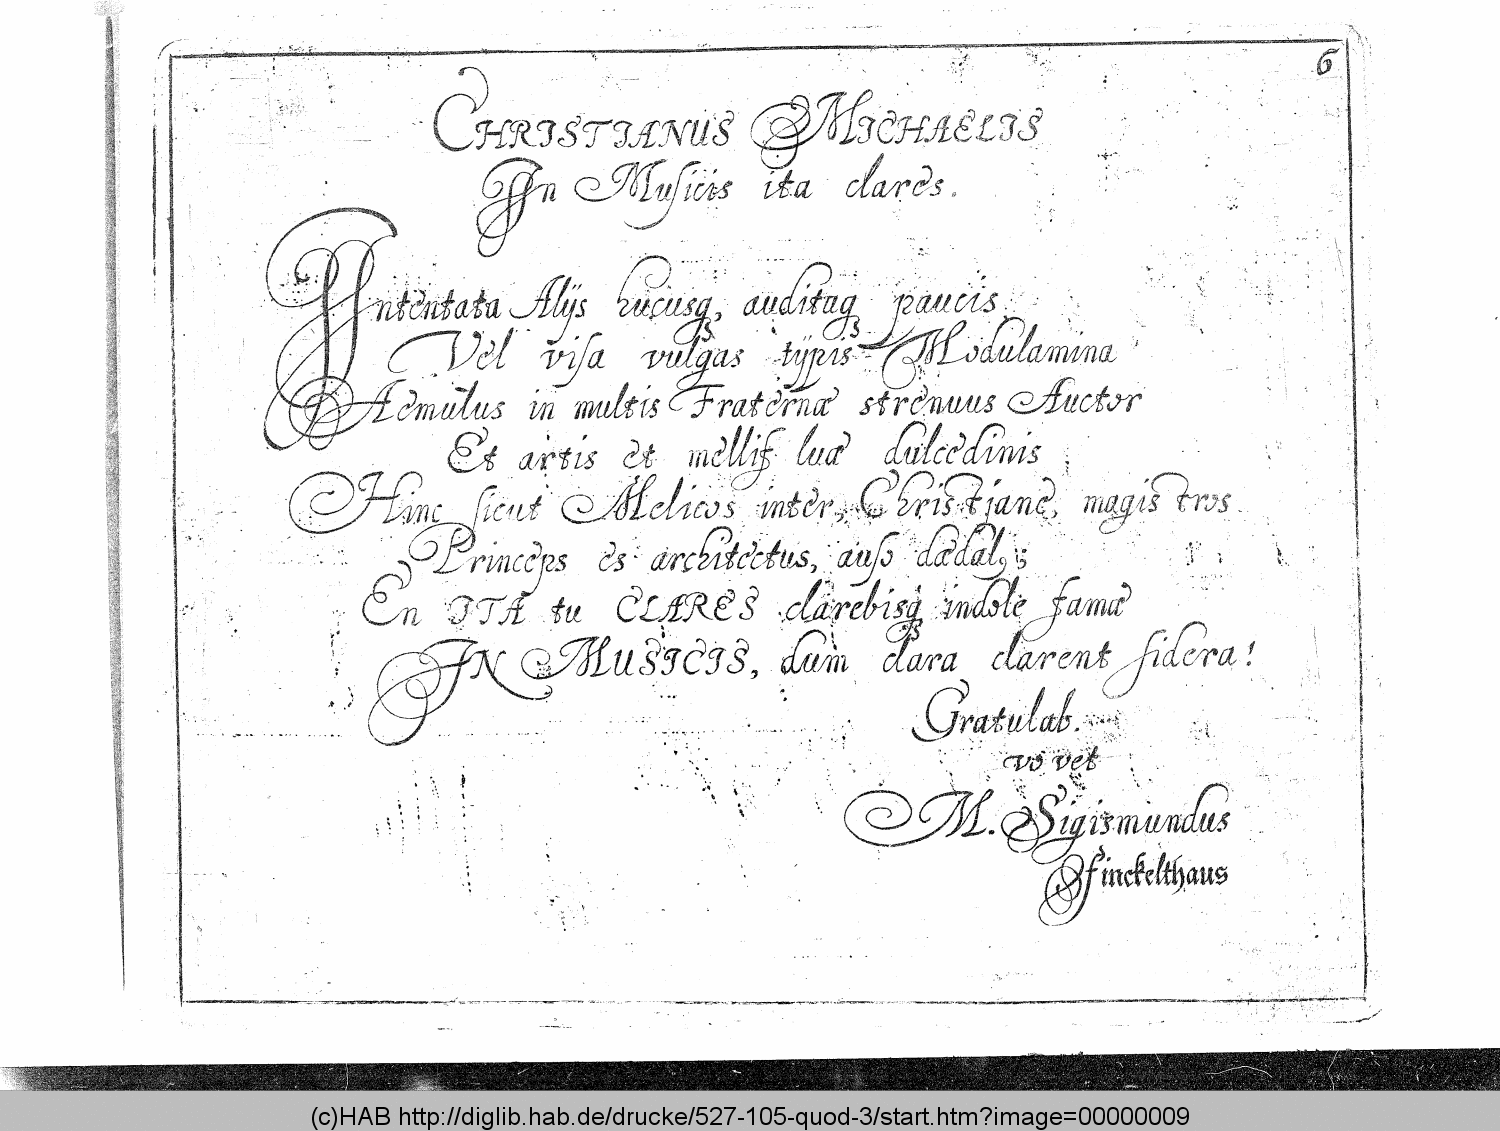 6
CHRISTIANUS MICHAELIS
In Musicis ita clares.
Intentata Alijs hucusq, auditaq paucis
Vel visa vulgas typis Modulamina
Aemulus in multis Fraternæ strenuus Auctor
Et artis et mellif luæ dulcedinis
Hinc sicut Melicos inter, Christjane, magistros
Princeps es architectus, auso dædal,;
En ITA tu CLARES clarebisq indole famæ
IN MUSICIS, dum clara clarent sidera!
Gratulab.
vovet
M. Sigismundus
Finckelthaus
(c)HAB http://diglib.hab.de/drucke/527-105-quod-3/start.htm?image=00000009